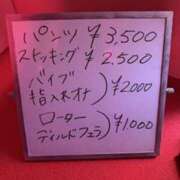 パンツ ¥3,500
ストッキング ¥2,500
バイブ
指入れオナ ) ¥2000
ローター
ディルドフェラ ) ¥1000